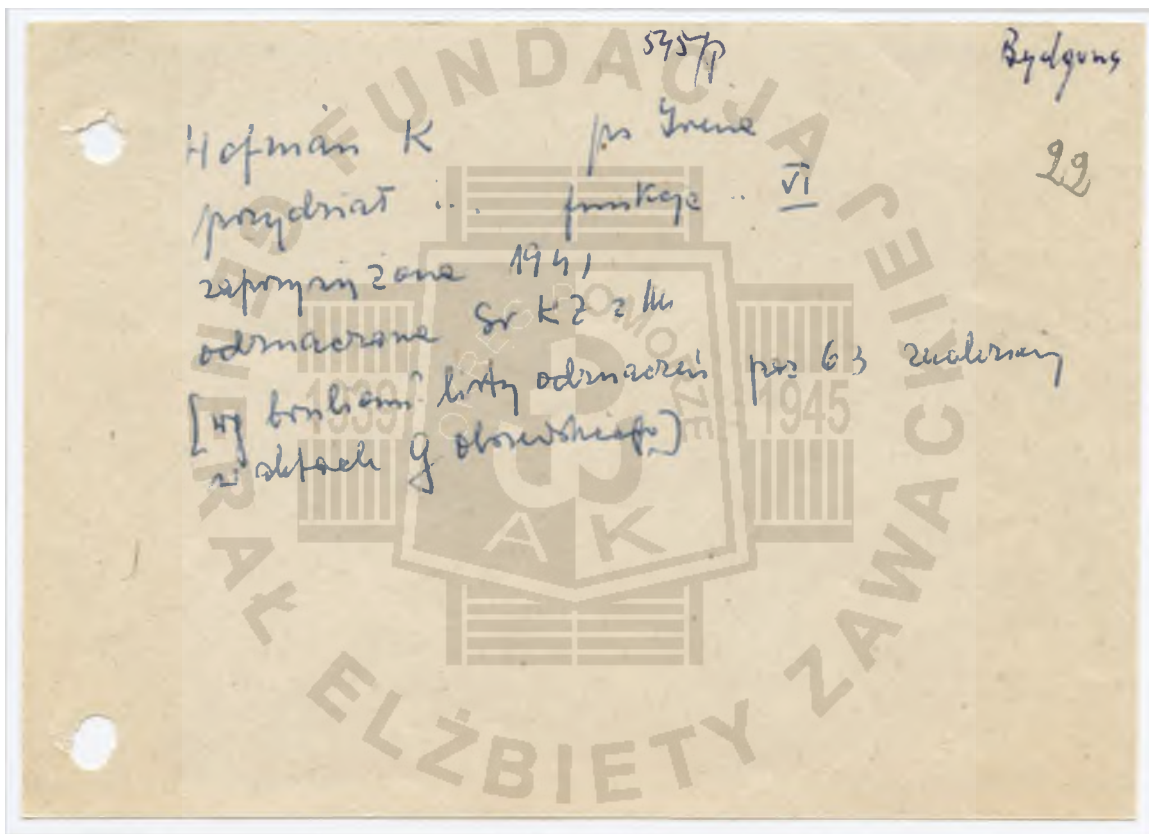 545/p
Bydgoszcz
22
Hofman K ps Irena
przydział ... funkcje .. VI
zaprzysiężona 1941
odznaczona Sr KZ z M
[wg brulionu listy odznaczeń poz 63 znalezionej
w aktach G Olszewskiego]
FUNDACJA GENERAŁ ELŻBIETY ZAWACKIEJ
OKRĘG POMORZE
1939 1945
AK